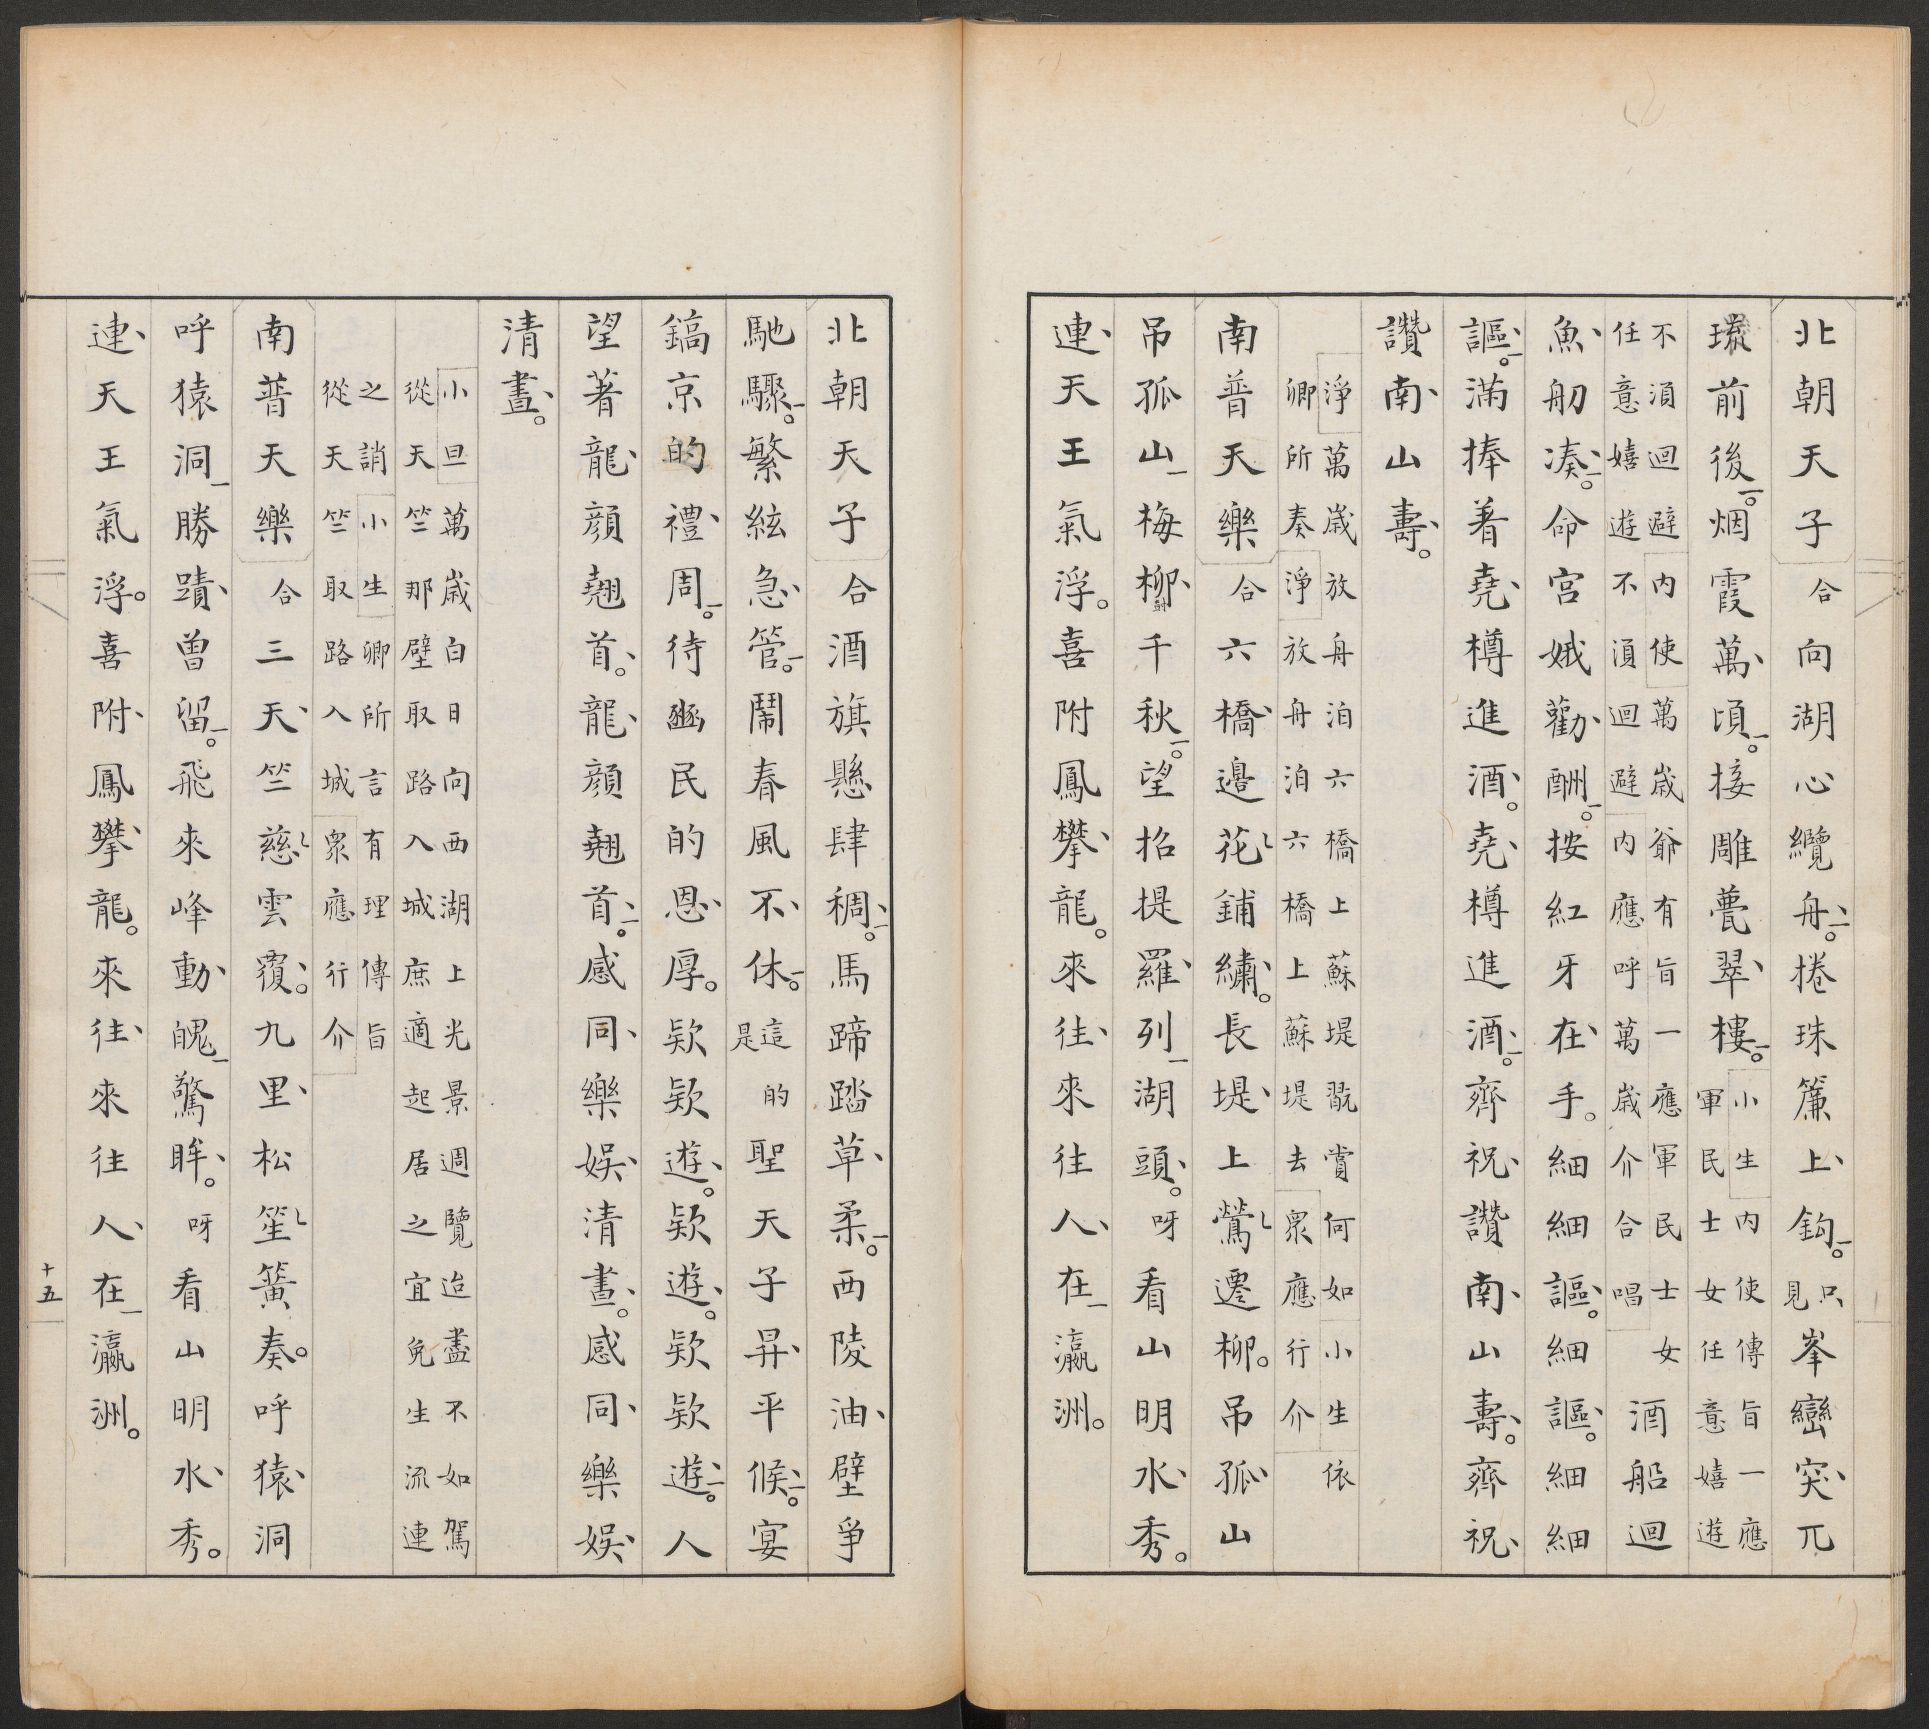 北朝天子合向湖心纜舟。捲珠簾上鈎。只見峯巒突兀
環前後。烟霞萬頃。接雕甍翠樓。小生內使傳旨一應軍民士女任意嬉遊
不湏迴避內使萬歲爺有旨一應軍民士女任意嬉遊不湏迴避內應呼萬歲介合唱酒船迴
魚舠湊。命宮娥勸酬。按紅牙在手。細細謳。細細謳。細細
謳。滿捧着堯樽進酒。堯樽進酒。齊祝讚南山壽。齊祝
讚南山壽。
淨萬歲放舟泊六橋上蘇堤翫賞何如小生依
卿所奏淨放舟泊六橋上蘇堤去衆應行介
南普天樂合六橋邊花鋪繡。長堤上鶯遷柳。吊孤山
吊孤山梅柳千秋。望招提羅列湖頭。呀看山明水秀。
連天王氣浮。喜附鳳攀龍。來往來往人在瀛洲。
北朝天子合酒旗懸肆稠。馬蹄踏草柔。西陵油壁爭
馳驟。繁絃急管。鬧春風不休。這是的聖天子昇平候。宴
鎬京的禮周。待豳民的恩厚。欵欵遊。欵欵遊。欵欵遊。人
望著龍顏翹首。龍顏翹首。感同樂娛清晝。感同樂娛
清晝。
小旦萬歲白日向西湖上光景週覽迨盡不如駕
從天竺那壁取路入城庶適起居之宜免生流連
之誚小生卿所言有理傳旨
從天竺取路入城衆應行介
南普天樂合三天竺慈雲覆。九里松笙簧奏。呼猿洞
呼猿洞勝蹟曾留。飛來峰動魄驚眸。呀看山明水秀。
連天王氣浮。喜附鳳攀龍。來往來往人在瀛洲。
十五